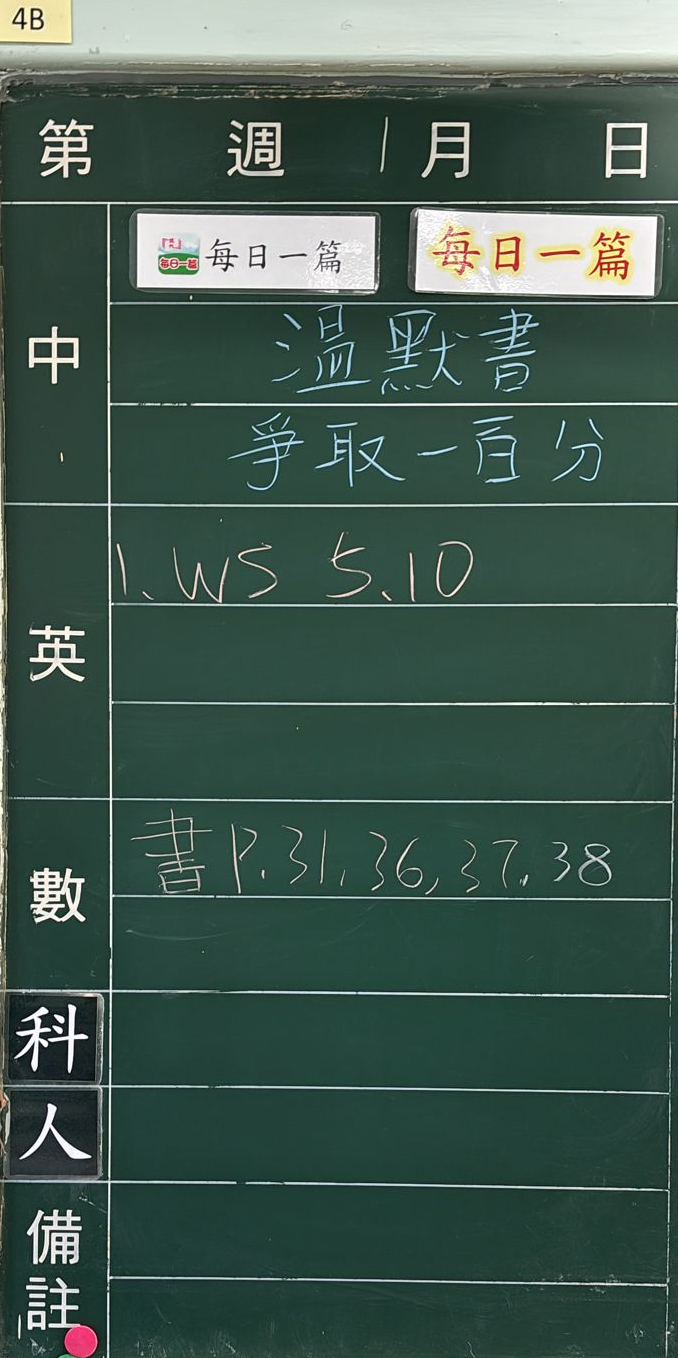 4B
第 週 1月 日
中
每日一篇 每日一篇 每日一篇
溫默書
爭取一百分
英
1. WS 5.10
數
書P.31, 36, 37, 38
科
人
備註